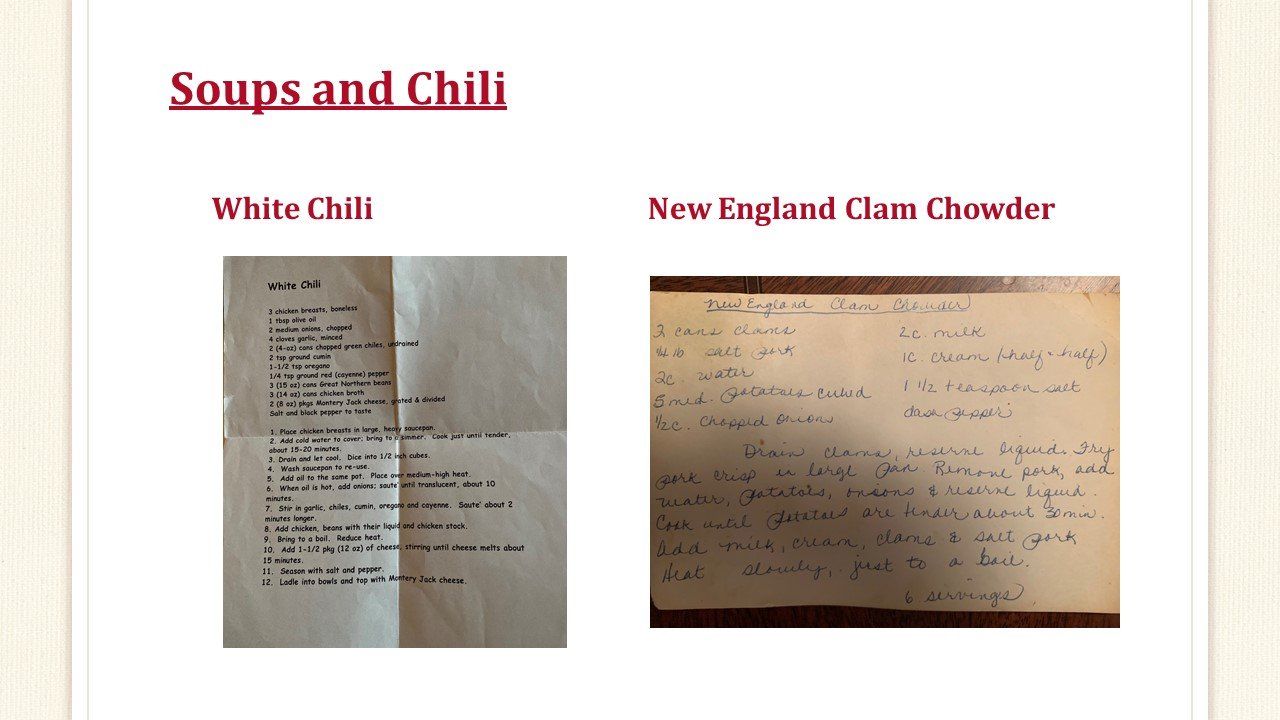 Soups and Chili
White Chili
New England Clam Chowder
White Chili
3 chicken breasts, boneless
1 tbsp olive oil
2 medium onions, chopped
4 cloves garlic, minced
2 (4-oz) cans chopped green chiles, undrained
2 tsp ground cumin
1-1/2 tsp oregano
1/4 tsp ground red (cayenne) pepper
3 (15 oz) cans Great Northern beans
3 (14 oz) cans chicken broth
2 (8 oz) pkgs Montery Jack cheese, grated & divided
Salt and black pepper to taste
1. Place chicken breasts in large, heavy saucepan.
2. Add cold water to cover; bring to a simmer. Cook just until tender,
about 15-20 minutes.
3. Drain and let cool. Dice into 1/2 inch cubes.
4. Wash saucepan to re-use.
5. Add oil to the same pot. Place over medium-high heat.
6. When oil is hot, add onions; saute' until translucent, about 10
minutes.
7. Stir in garlic, chiles, cumin, oregano and cayenne. Saute' about 2
minutes longer.
8. Add chicken, beans with their liquid and chicken stock.
9. Bring to a boil. Reduce heat.
10. Add 1-1/2 pkg (12 oz) of cheese, stirring until cheese melts about
15 minutes.
11. Season with salt and pepper.
12. Ladle into bowls and top with Montery Jack cheese.
New England Clam Chowder
2 cans clams
1/4 lb salt pork
2c. water
5 med. potatoes cubed
1/2c. chopped onions
2c. milk
1c. cream (half + half)
1 1/2 teaspoon salt
dash pepper
Drain clams, reserve liquid. Fry
pork crisp in large pan. Remove pork, add
water, potatoes, onions & reserve liquid.
Cook until potatoes are tender about 30 min.
Add milk, cream, clams & salt pork
Heat slowly, just to a boil.
6 servings